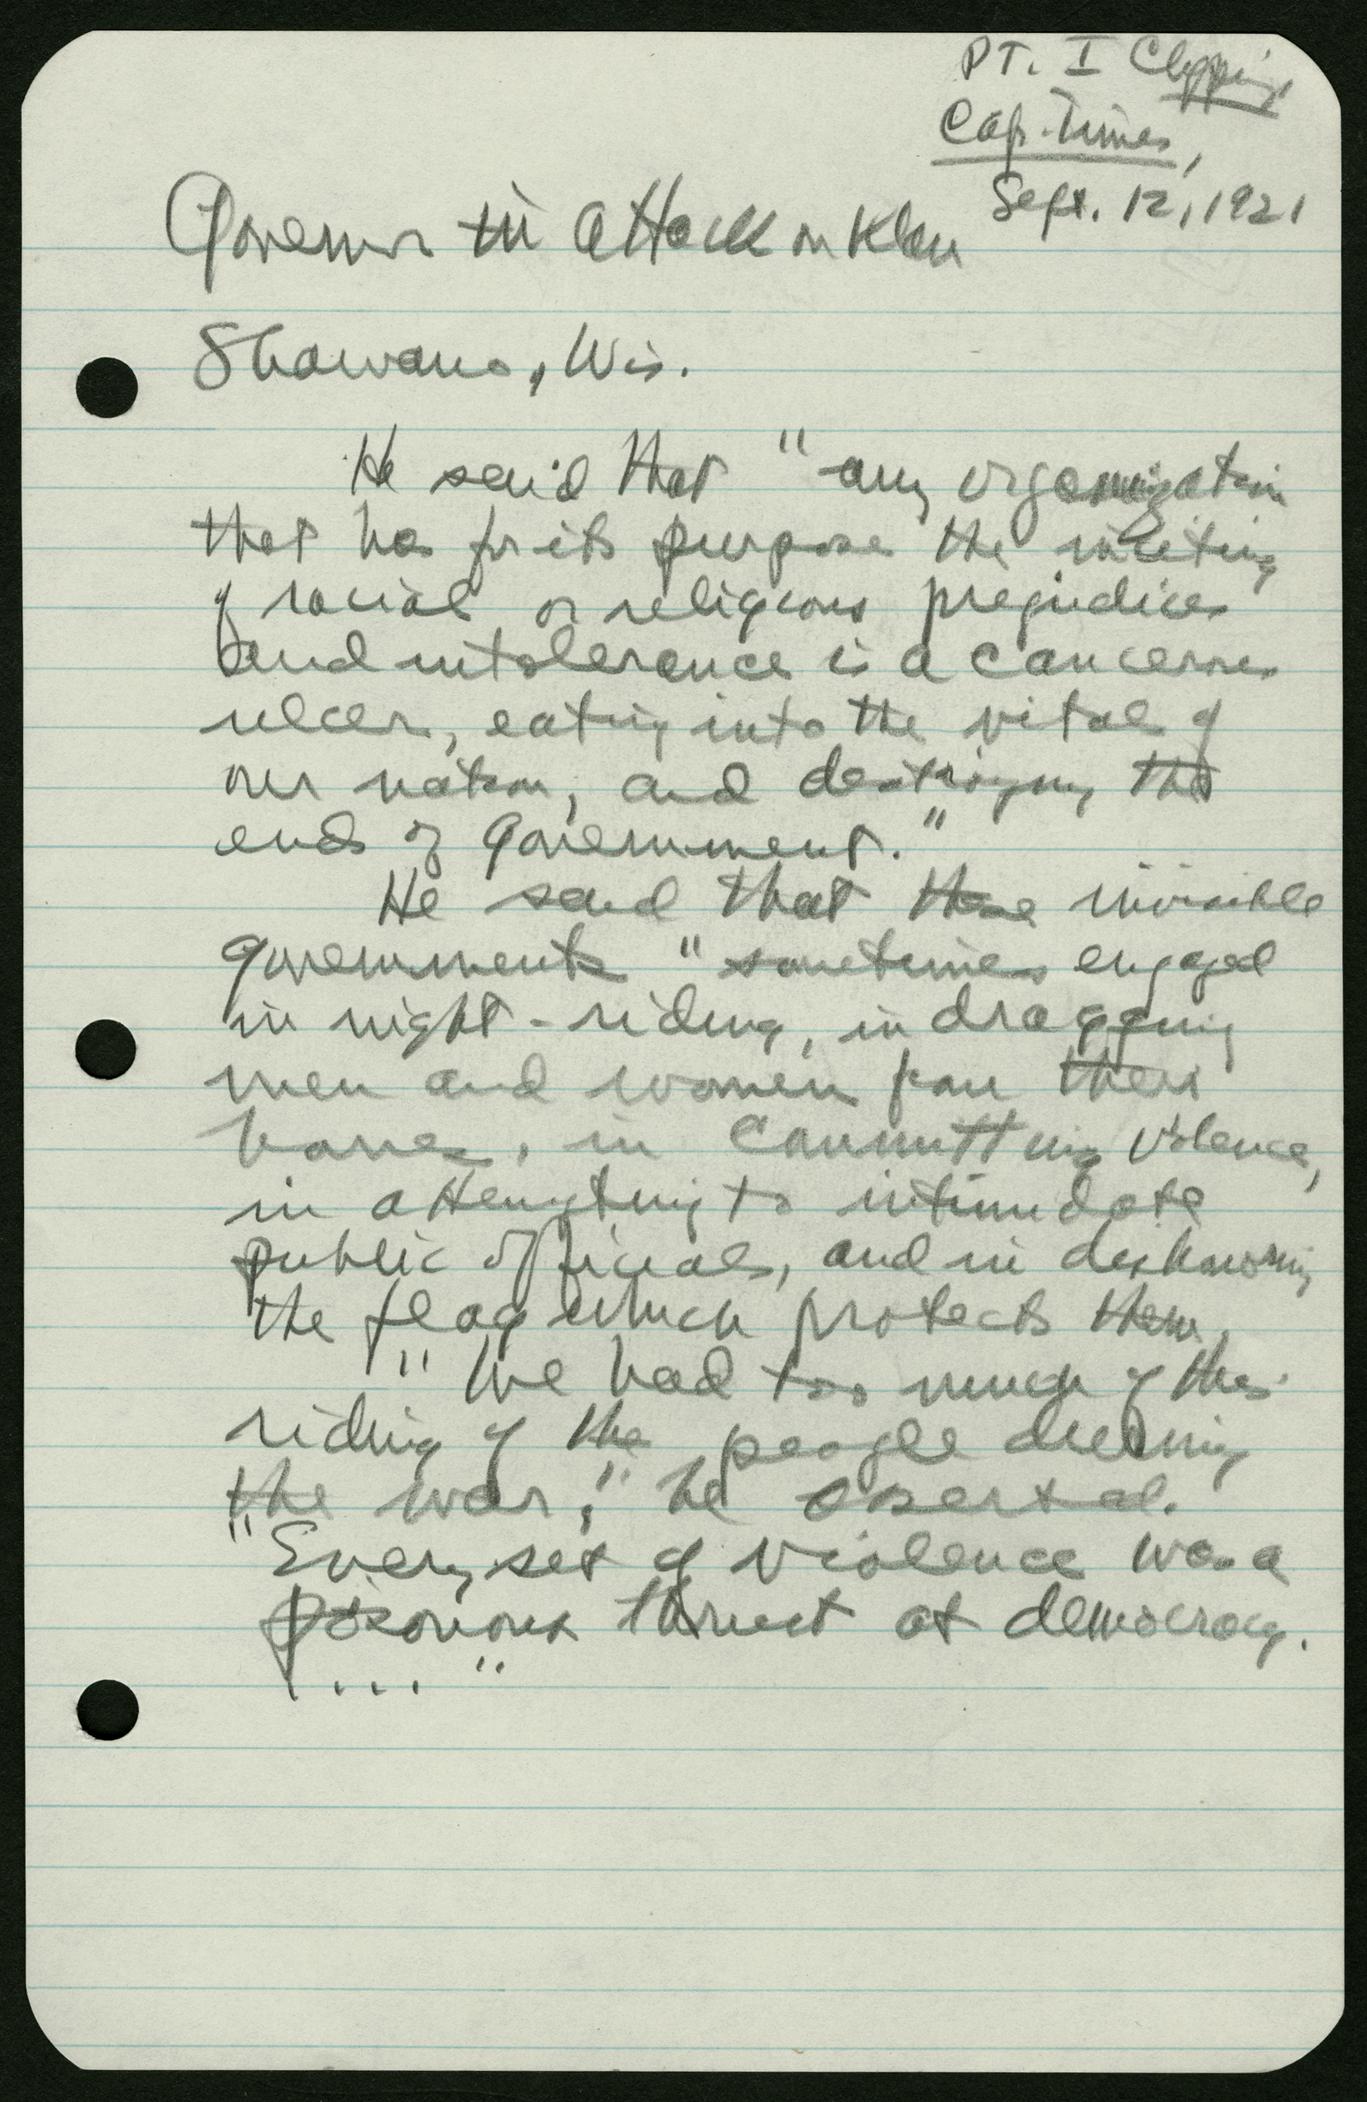 PT. I Clippings
Cap. Times,
Sept. 12, 1921
Governor in Attack on Klan
Shawano, Wis.
He said that "any organization
that has for its purpose the inciting
of racial or religious prejudices
and intolerance is a cancerous
ulcer, eating into the vitals of
our nation, and destroying the
ends of government."
He said that these invisible
governments "sometimes engaged
in night-riding, in dragging
men and women from their
homes, in committing violence,
in attempting to intimidate
public officials, and in dishonoring
the flag which protects them.
"We had too much of this
riding of the people during
the war," he asserted.
"Every set of violence was a
poisonous thrust at democracy.
...."